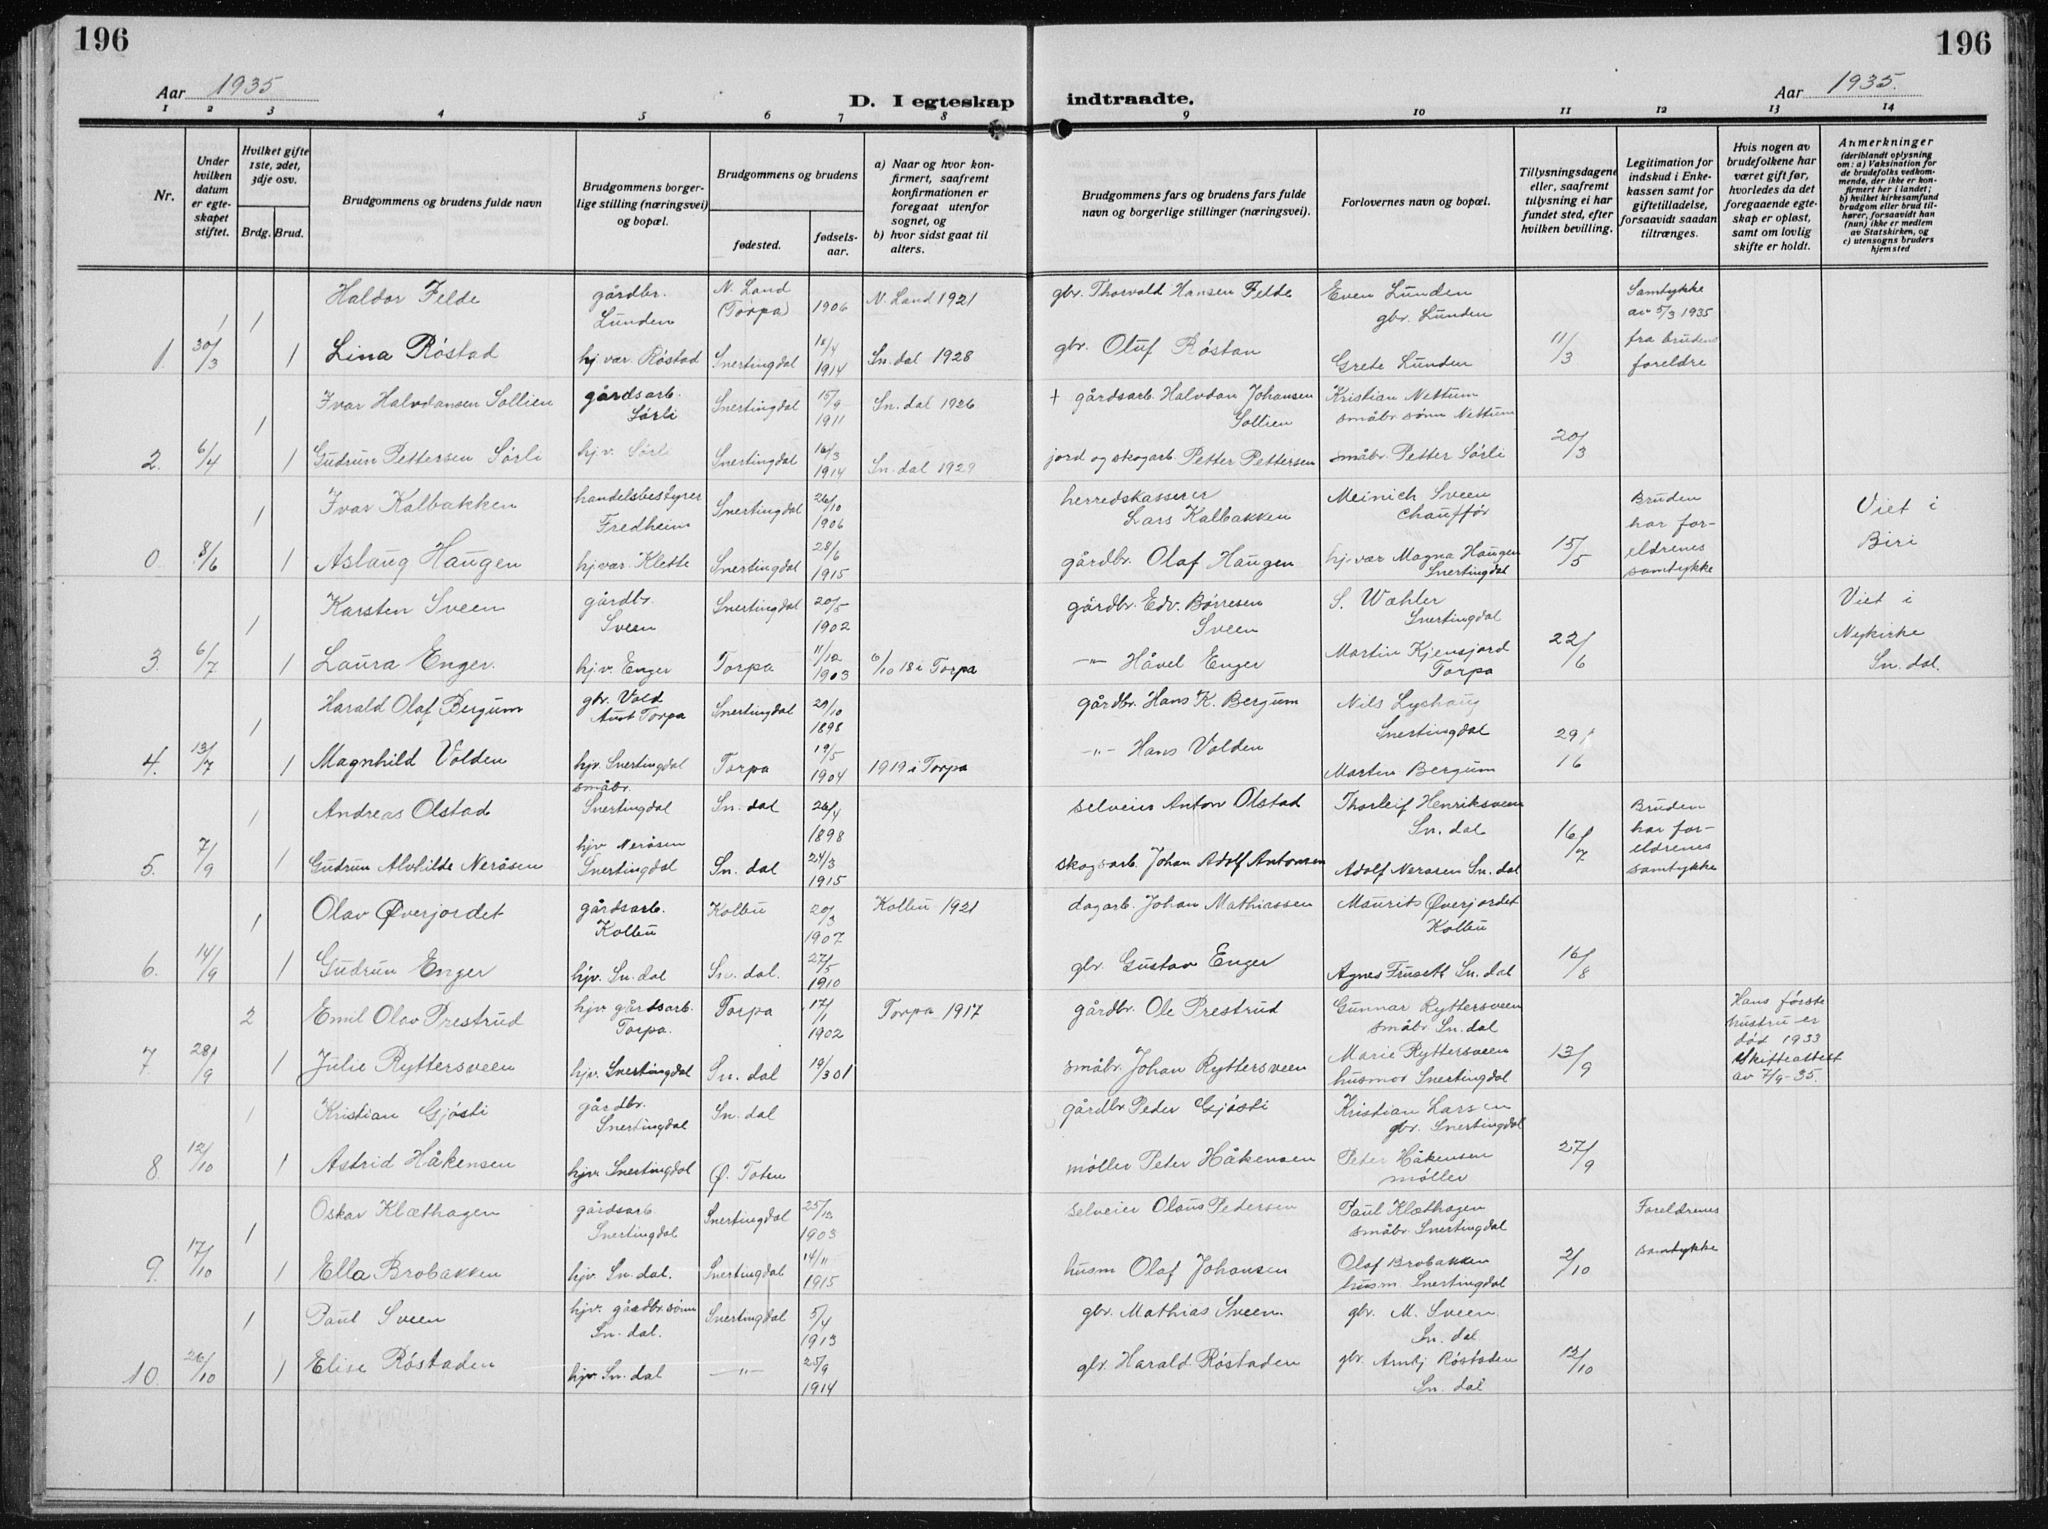 196
196
Aar 1935
D. I egteskap indtraadte.
Aar 1935.
1 2 3 4 5 6 7 8 9 10 11 12 13 14
Nr.
Under hvilken datum er egte- skapet stiftet.
Hvilket gifte 1ste, 2det, 3dje osv.
Brdg. Brud.
Brudgommens og brudens fulde navn
Brudgommens borger- lige stilling (næringsvei) og bopæl.
Brudgommens og brudens
fødested.
fødsels- aar.
a) Naar og hvor kon- firmert, saafremt konfirmationen er foregaat utenfor sognet, og
b) hvor sidst gaat til alters.
Brudgommens fars og brudens fars fulde navn og borgerlige stillinger (næringsvei).
Forlovernes navn og bopæl.
Tillysningsdagene eller, saafremt tillysning ei har fundet sted, efter hvilken bevilling.
Legitimation for indskud i Enke- kassen samt for giftetilladelse, forsaavidt saadan tiltrænges.
Hvis nogen av brudefolkene har været gift før, hvorledes da det foregaaende egte- skap er opløst, samt om lovlig skifte er holdt.
Anmerkninger (deriblandt oplysning om: a) Vaksination for de brudefolks vedkom- mende, der ikke er kon- firmert her i landet; b) hvilket kirkesamfund brudgom eller brud til- hører, forsaavidt han (hun) ikke er medlem av Statskirken, og c) utensogns bruders hjemsted
1 Haldor Felde gårdbr. Lunden N. Land (Torpa) 1906 N. Land 1921 gbr. Thorvald Hansen Felde Even Lunden gbr. Lunden Samtykke av 5/3 1935
1. 30/3 1 Lina Røstad hj.vær. Røstad Snertingdal 1914 Sn. dal 1928 gbr. Oluf Røstan Grete Lunden 11/3 fra brudens foreldre
1 Ivar Halvdansen Sollien gårdsarb. Sørli Snertingdal 15/9 1911 Sn. dal 1926 + gårdsarb. Halvdan Johansen Sollien Kristian Nettum småbr. sønn Nettum
2. 6/4 1 Gudrun Pettersen Sørli hjv. Sørli Snertingdal 16/3 1914 Sn. dal 1929 jord og skogarb. Petter Pettersen småbr. Petter Sørli 20/3
1 Ivar Kalbakken handelsbestyrer Fredheim Snertingdal 26/10 1906 herredskasserer Lars Kalbakken Meinich Sveen chauffør Bruden har for- Viet i
0 8/6 1 Aslaug Haugen hj.vær. Klette Snertingdal 28/6 1915 gårdbr. Olaf Haugen hj.vær Magna Haugen Snertingdal 15/5 eldrenes samtykke Biri
1 Karsten Sveen gårdbr. Sveen Snertingdal 20/5 1902 gårdbr. Edv. Børresen Sveen S. Wæhler Snertingdal Viet i
3. 6/7 1 Laura Enger. hjv. Enger Torpa 11/12 1903 6/10 18 i Torpa -"- Håvel Enger Martin Kjensjord Torpa 22/6 Nykirke Sn. dal.
1 Harald Olaf Bergum gbr. Vold Aust Torpa Snertingdal 29/10 1898 gårdbr. Hans K. Bergum Nils Lyshaug Snertingdal
4. 13/7 1 Magnhild Volden hjv. Snertingdal Torpa 19/5 1904 1919 i Torpa -"- Hans Volden Martin Bergum 29/ 16
1 Andreas Olstad småbr. Snertingdal Sn. dal 26/4 1898 selveier Anton Olstad Thorleif Henriksveen Sn. dal Bruden har for-
5. 7/9 1 Gudrun Alvhilde Neråsen hjv Neråsen Snertingdal Sn. dal 24/3 1915 skogsarb. Johan Adolf Antonsen Adolf Neråsen Sn. dal 16/7 eldrenes samtykke
1 Olav Øverjordet gårdsarb. Kolbu Kolbu 20/3 1907 Kolbu 1921 dagarb. Johan Mathiassen Maurits Øverjordet Kolbu
6. 14/9 1 Gudrun Enger hjv. Sn. dal Sn. dal. 27/5 1910 gbr. Gustav Enger Agnes Fruseth Sn. dal 16/8
2 Emil Olav Prestrud hjv gårdsarb. Torpa. Torpa 17/1 1902 Torpa 1917 gårdbr. Ole Prestrud Gunnar Ryttersveen småbr. Sn. dal Hans første hustru er død 1933
7 28/9 1 Julie Ryttersveen hjv. Snertingdal Sn. dal 19/3 01 småbr. Johan Ryttersveen Marie Ryttersveen husmor Snertingdal 13/9 Skifteattest av 7/9-35.
1 Kristian Gjøsti gårdbr. Snertingdal Sn. dal gårdbr Peder Gjøsti Kristian Larsen gbr. Snertingdal
8 12/10 1 Astrid Håkensen hjv. Snertingdal Ø. Toten møller Peter Håkensen Peter Håkensen møller 27/9
1 Oskar Klæthagen gårdsarb Snertingdal Snertingdal 25/12 1903 selveier Olaus Pedersen Paul Klæthagen småbr. Snertingdal Foreldrenes
9. 17/10 1 Ella Brobakken hjv. Sn. dal. Snertingdal 14/11 1915 husm Olaf Johansen Olaf Brobakken husm. Snertingdal 2/10 samtykke
1 Paul Sveen hjv. gårdbr. sønn Sn. dal. Snertingdal 5/4 1913 gbr. Mathias Sveen gbr. M. Sveen. Sn. dal
10. 26/10 1 Elise Røstaden hjv. Sn. dal -"- 25/9 1914 gbr. Harald Røstaden gbr. Arnlj Røstaden Sn. dal 12/10